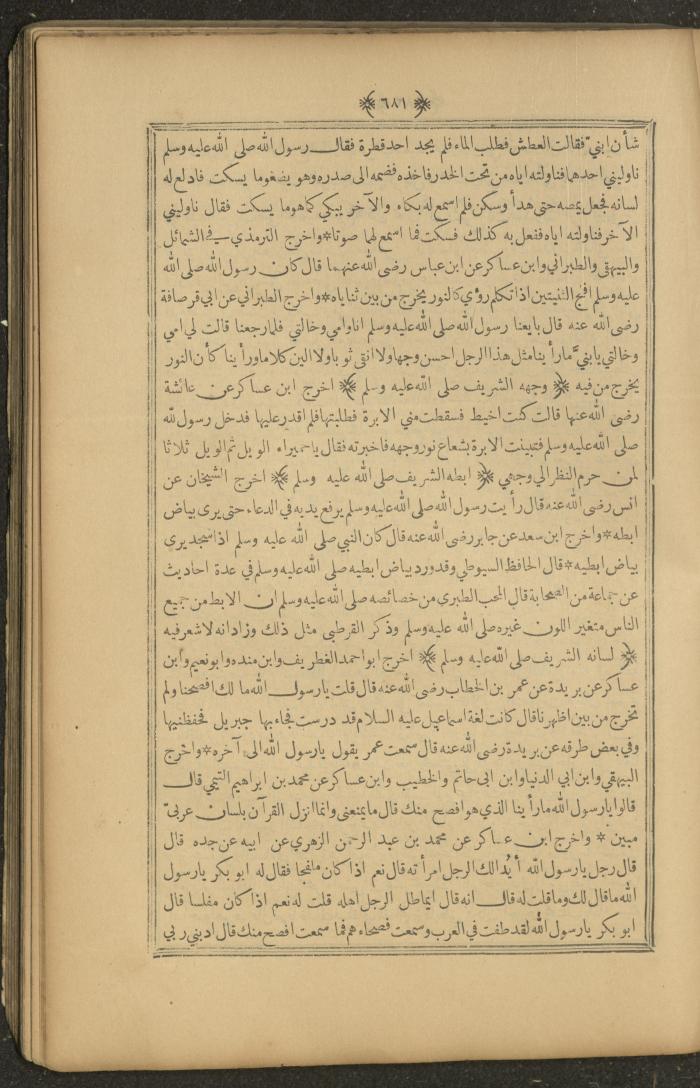 ﴿ ٦٨١ ﴾
شأن ابنيّ فقالت العطش فطلب الماء فلم يجد احد قطرة فقال رسول الله صلى الله عليه وسلم
ناوليني احدهما فناولته اياه من تحت الخدر فاخذه فضمه الى صدره وهو يضغو ما يسكت فادلع له
لسانه فجعل يمصه حتى هدأ وسكن فلم اسمع له بكاء والآخر يبكي كما هو ما يسكت فقال ناوليني
الآخر فناولته اياه ففعل به كذلك فسكت فما اسمع لهما صوتا * واخرج الترمذي في الشمائل
والبيهقي والطبراني وابن عساكر عن ابن عباس رضى الله عنهما قال كان رسول الله صلى الله
عليه وسلم افلج الثنيتين اذا تكلم رؤي كالنور يخرج من بين ثناياه * واخرج الطبراني عن ابي قرصافة
رضى الله عنه قال بايعنا رسول الله صلى الله عليه وسلم انا وامي وخالتي فلما رجعنا قالت لي امي
وخالتي يا بنيّ ما رأينا مثل هذا الرجل احسن وجها ولا انقى ثوبا ولا الين كلاما ورأينا كأن النور
يخرج من فيه ﴿ وجهه الشريف صلى الله عليه وسلم ﴾ اخرج ابن عساكر عن عائشة
رضى الله عنها قالت كنت اخيط فسقطت مني الابرة فطلبتها فلم اقدر عليها فدخل رسول لله
صلى الله عليه وسلم فتبينت الابرة بشعاع نور وجهه فاخبرته فقال يا حميراء الويل ثم الويل ثلاثا
لمن حرم النظر الي وجهي ﴿ ابطه الشريف صلى الله عليه وسلم ﴾ اخرج الشيخان عن
انس رضى الله عنه قال رأيت رسول الله صلى الله عليه وسلم يرفع يديه في الدعاء حتى يرى بياض
ابطه * واخرج ابن سعد عن جابر رضى الله عنه قال كان النبي صلى الله عليه وسلم اذا سجد يرى
بياض ابطيه * قال الحافظ السيوطي وقد ورد بياض ابطيه صلى الله عليه وسلم في عدة احاديث
عن جماعة من الصحابة قال المحب الطبري من خصائصه صلى الله عليه وسلم ان الابط من جميع
الناس متغير اللون غيره صلى الله عليه وسلم وذكر القرطبي مثل ذلك وزاد انه لا شعر فيه
﴿ لسانه الشريف صلى الله عليه وسلم ﴾ اخرج ابو احمد الغطريف وابن منده وابو نعيم وابن
عساكر عن بريدة عن عمر بن الخطاب رضى الله عنه قال قلت يا رسول الله ما لك افصحنا ولم
تخرج من بين اظهرنا قال كانت لغة اسماعيل عليه السلام قد درست فجاء بها جبريل فحفظنيها
وفي بعض طرقه عن بريدة رضى الله عنه قال سمعت عمر يقول يا رسول الله الى آخره * واخرج
البيهقي وابن ابي الدنيا وابن ابى حاتم والخطيب وابن عساكر عن محمد بن ابراهيم التيمي قال
قالوا يا رسول الله ما رأينا الذي هو افصح منك قال ما يمنعنى وانما انزل القرآن بلسان عربيّ
مبين * واخرج ابن عساكر عن محمد بن عبد الرحمن الزهري عن ابيه عن جده قال
قال رجل يا رسول الله أيُدالك الرجل امرأته قال نعم اذا كان ملفجا فقال له ابو بكر يا رسول
الله ما قال لك وما قلت له قال انه قال ايماطل الرجل اهله قلت له نعم اذا كان مفلسا قال
ابو بكر يا رسول الله لقد طفت في العرب وسمعت فصحاءهم فما سمعت افصح منك قال ادبني ربي